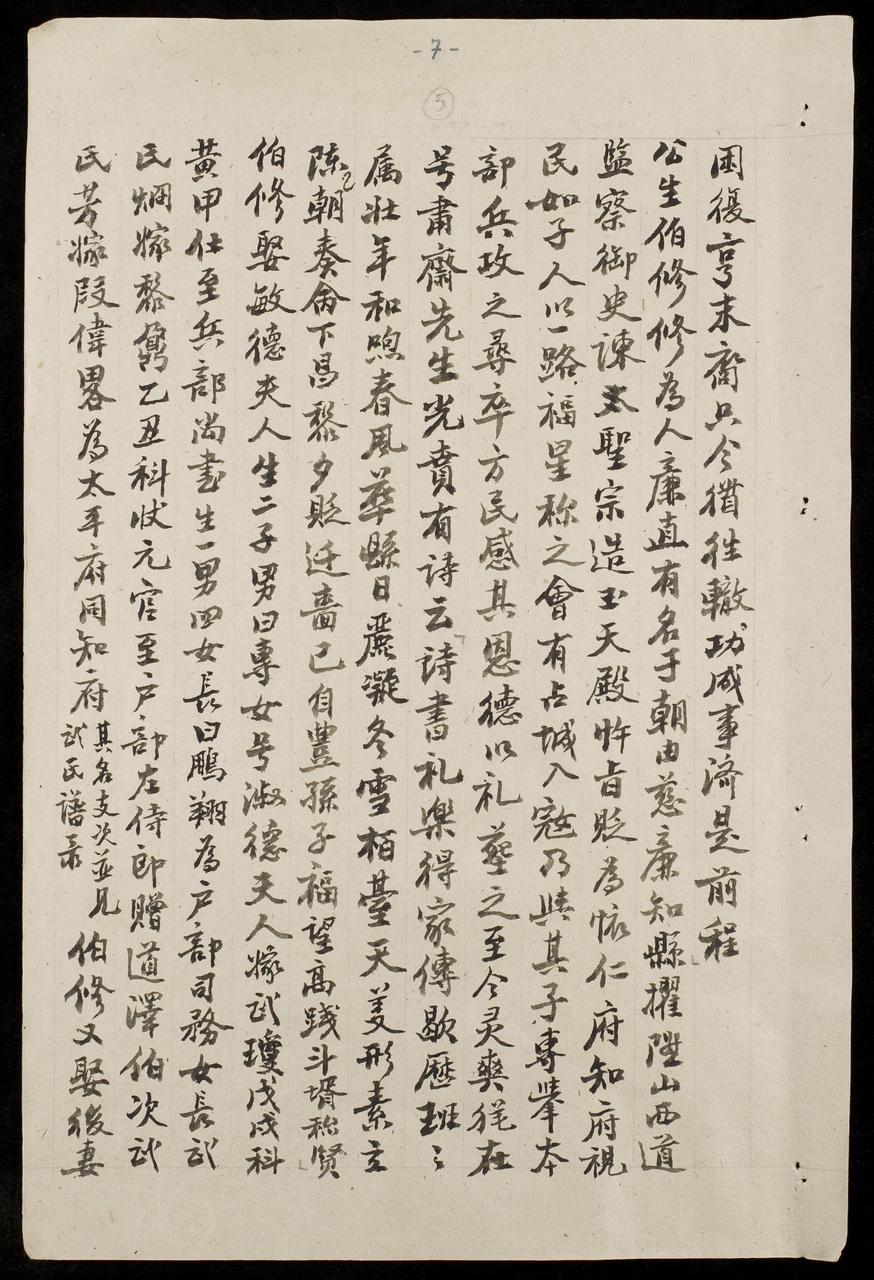 -7-
5
困復亨末齋只今猎往轍功成事済是前程
公生伯修修為人廉直有名于朝由慈廉知縣擢陞山西道
監察御史諫太聖宗造玉天殿忤旨貶為懷仁府知府視
民如子人以一路福星称之會有占城入寇乃與其子專舉本
部兵攻之尋卒方民感其恩德以礼塟之至今灵爽從在
号肅齋先生光賁有詩云詩書礼楽得家傳歇歴班〻
属壮年和煦春風華縣日嚴凝冬雪栢臺天姜形素立
陳〻朝奏侖下昌黎夕貶迁啬已自豊孫子福望高践斗壻称賢
伯修娶敏德夫人生二子男曰專女号淑德夫人嫁武瓊戊戌科
黄甲仕至兵部尚書生一男四女長曰鵬翔為户部司務女長武
民炯嫁黎鼐乙丑科状元官至户部左侍郎贈道澤伯次武
民芳嫁段偉畧為太平府同知府其名支次並見武民譜录伯修又娶後妻